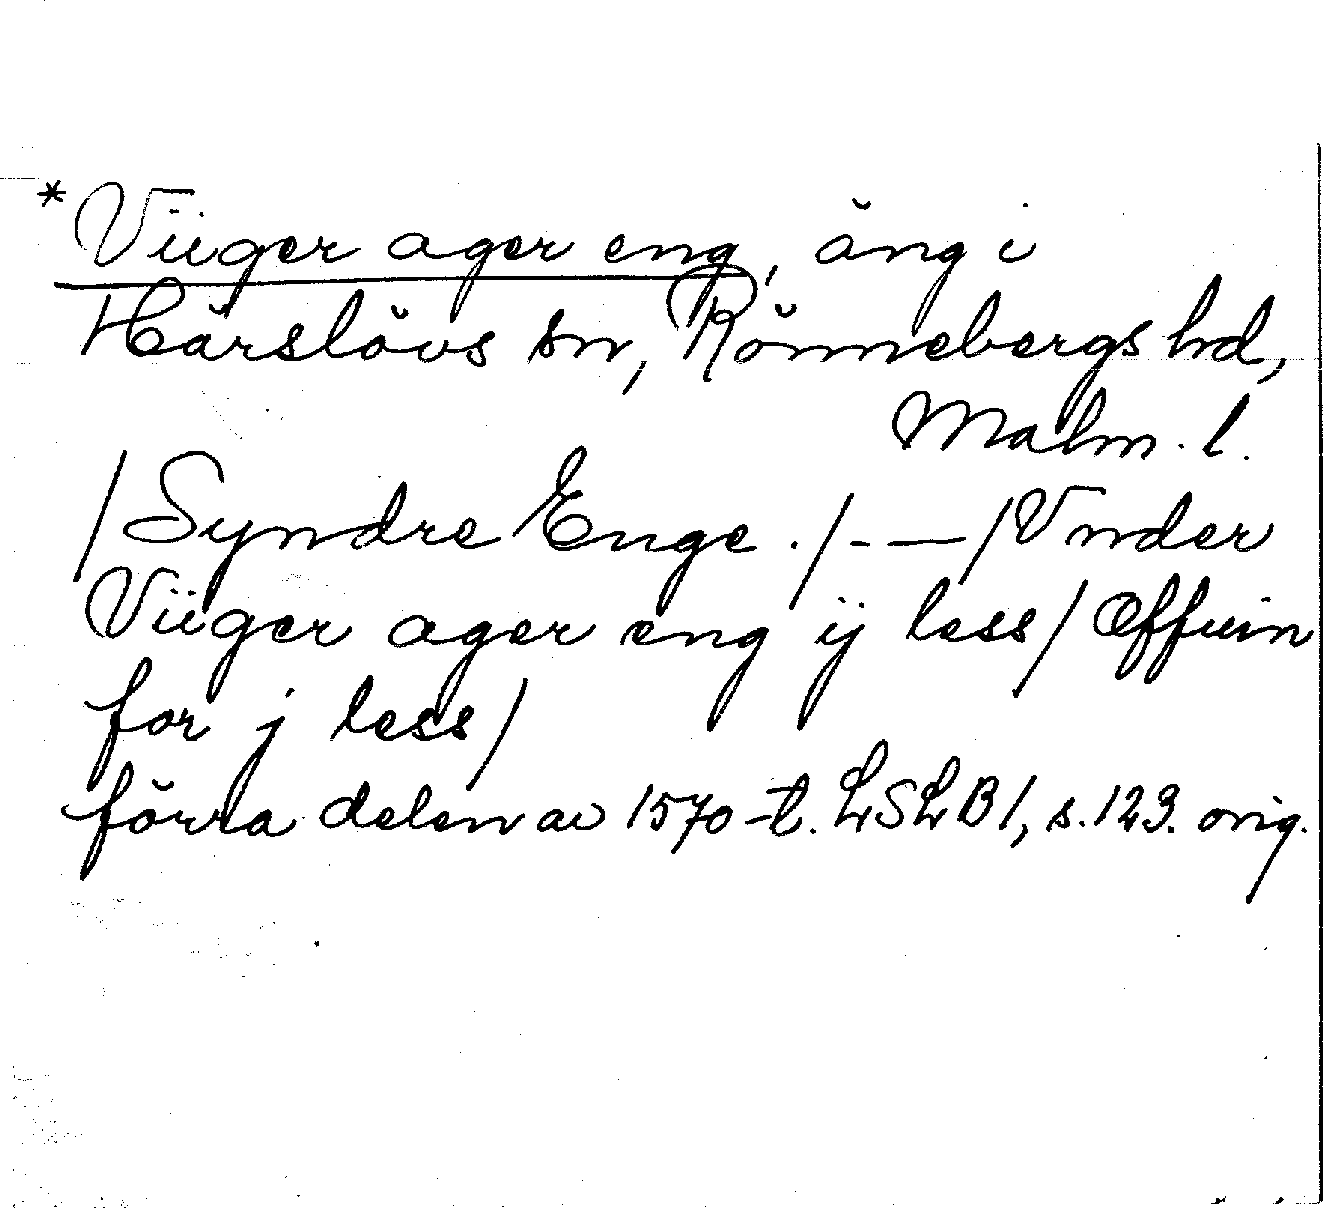 *Viiger ager eng, äng i
Härslövs sn, Rönnebergs hd,
Malm. l.
/Syndre Enge ./-—/Vnder
Viiger ager eng ij less/ Øffuin
for j less/
förra delen av 1570-t. LSLB1, s. 123. orig.